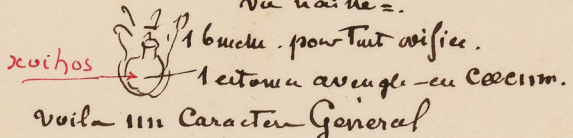 1 bouche . pour Tout orifice .
xoihos
1 estomac aveugle - en Cœcum.
Voila un Caractere General